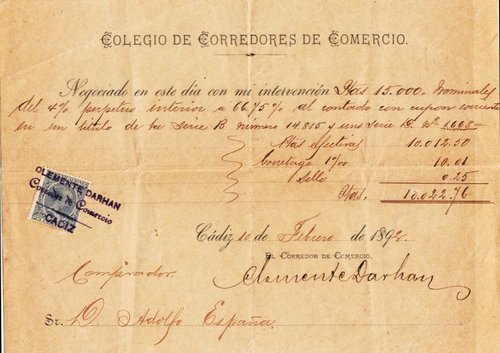 COLEGIO DE CORREDORES DE COMERCIO.
Negociado en este día con mi intervención Ptas 15.000,- Nominales
del 4% perpetuo interior a 66.75% al contado con cupon corriente
en un título de la Serie B número 14.815 y uno Serie Nº 1668-
Ptas efectivas 10.012.50
Corretage 1º/00 10.01
1 Sello 0.25
Ptas. 10.022.76
CLEMENTE DARHAN
Corredor de Comercio
CADIZ
Cádiz 10 de Febrero de 1892.
EL CORREDOR DE COMERCIO,
Clemente Darhan
Comprador
Sr. D. Adolfo España.